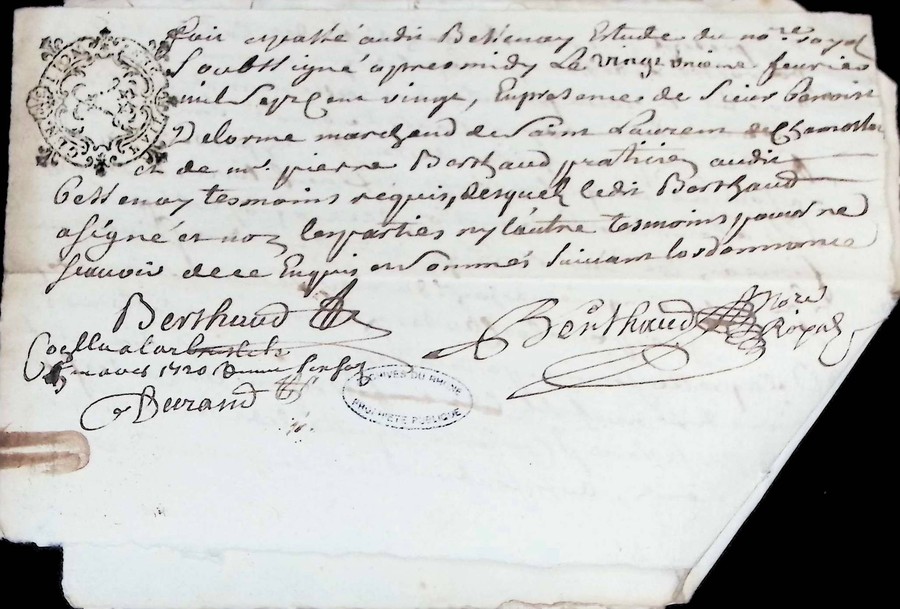 fait et passé audit Bessenay Estude du no.re royal
Soubssigné apres midy Le vingt unieme feuvrier
mil Sept cent vingt, En presence de Sieur Benoist
Delorme marchand de Saint Laurent de Chamosset
et de m.e pierre Berthaud praticien audit
Bessenay tesmoins requis, desquel ledit Berthaud
a signé et non les parties ny l'autre tesmoins pour ne
scauoir de ce Enquis et Sommés Suiuant Lordonnance
Berthaud
Berthaud Nore
Royal
mars 1720
Durand
ARCHIVES DU RHONE
PROPRIETE PUBLIQUE